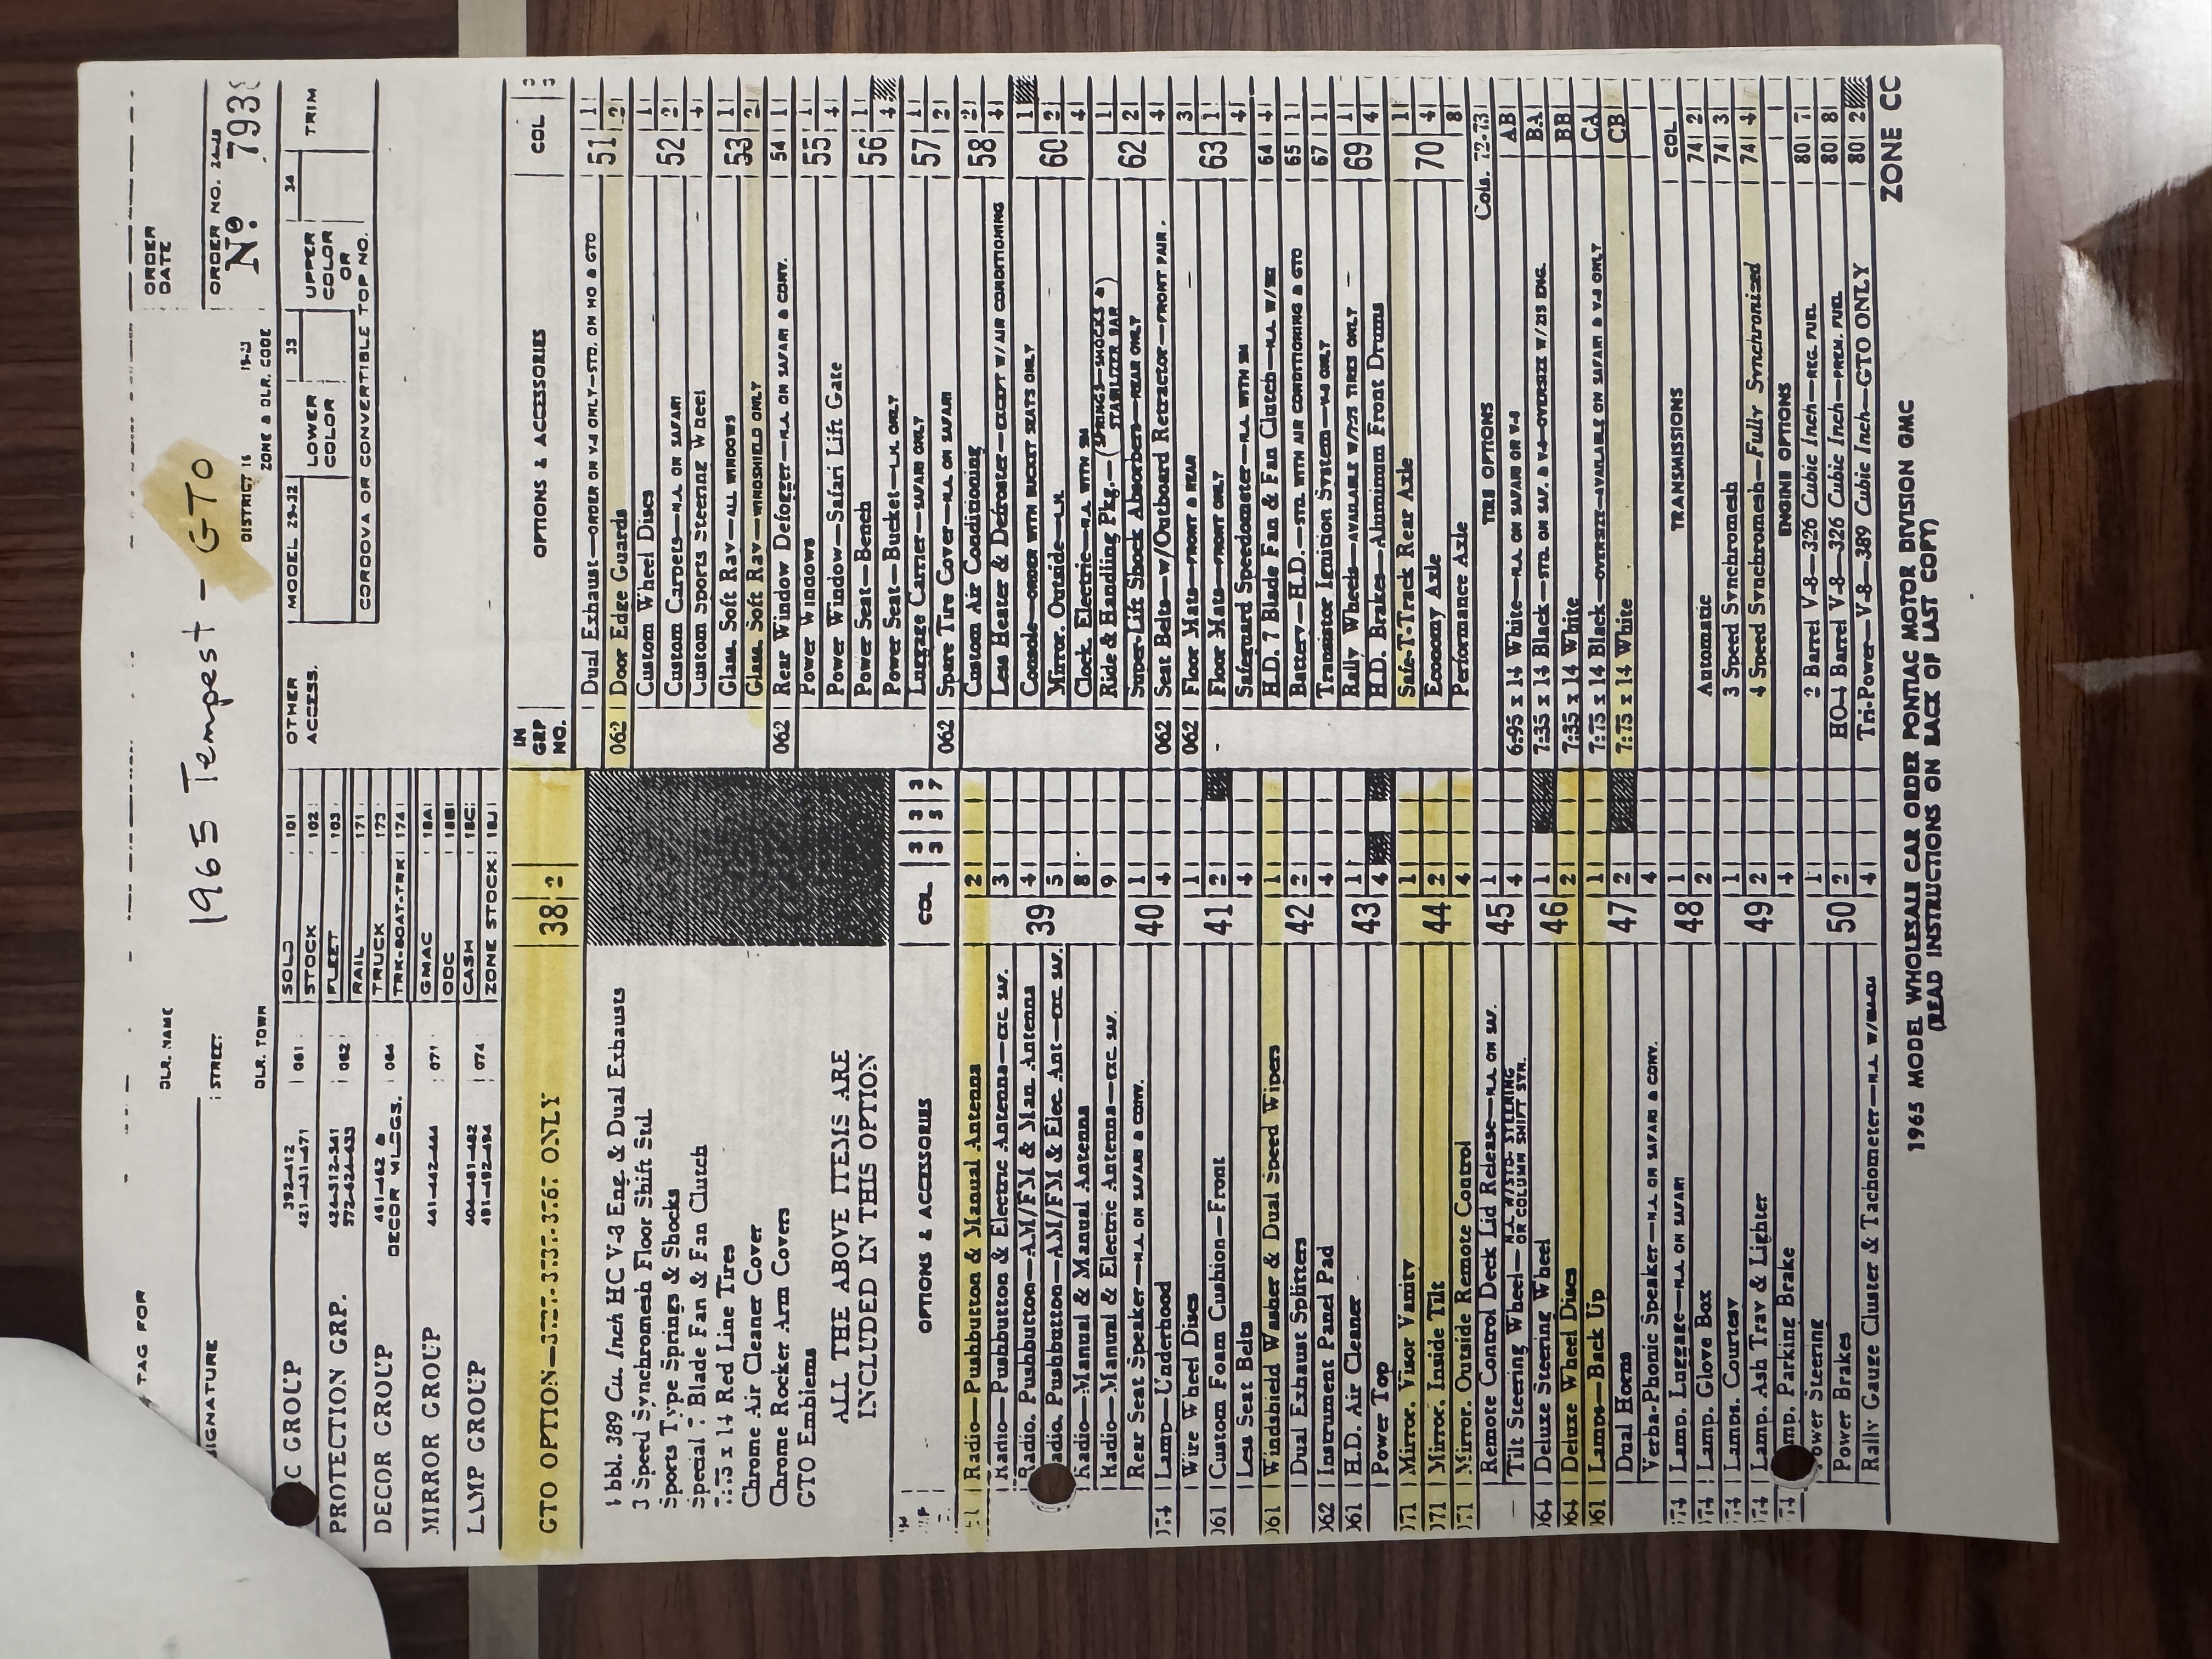 1965 Tempest - GTO
TAG FOR
SIGNATURE
DLR. NAME
STREET
DLR. TOWN
DISTRICT 16
ZONE & DLR. CODE
ORDER DATE
ORDER NO.
No. 793
C GROUP 392-412 421-431-471 081
PROTECTION GRP. 424-512-541 572-624-633 062
DECOR GROUP 461-462 & DECOR MLDGS. 064
MIRROR GROUP 441-442-444 071
LAMP GROUP 474-481-482 491-492-494 074
SOLD 101
STOCK 102
FLEET 103
RAIL 171
TRUCK 173
TRK-BOAT-TRK 174
GMAC 18A
ODC 18B
CASH 18C
ZONE STOCK 18J
OTHER ACCESS.
MODEL 29-32
LOWER COLOR 33
UPPER COLOR OR 34 TRIM
CORDOVA OR CONVERTIBLE TOP NO.
GTO OPTION ONLY 38 2
389 Cu. Inch HC V-8 Eng. & Dual Exhausts
3 Speed Synchromesh Floor Shift Std.
Sports Type Springs & Shocks
Special 7 Blade Fan & Fan Clutch
x 14 Red Line Tires
Chrome Air Cleaner Cover
Chrome Rocker Arm Covers
GTO Emblems
ALL THE ABOVE ITEMS ARE
INCLUDED IN THIS OPTION
OPTIONS & ACCESSORIES COL
Radio—Pushbutton & Manual Antenna 2
Radio—Pushbutton & Electric Antenna—EXC SAF. 3
Radio, Pushbutton—AM/FM & Man Antenna 39 4
Radio, Pushbutton—AM/FM & Elec. Ant—EXC SAF. 5
Radio—Manual & Manual Antenna 8
Radio—Manual & Electric Antenna—EXC SAF. 9
Rear Seat Speaker—N.A. ON SAFARI & CONV. 40 1
Lamp—Underhood 4
Wire Wheel Discs 1
Custom Foam Cushion—Front 41 2
Less Seat Belts 4
Windshield Washer & Dual Speed Wipers 1
Dual Exhaust Splitters 42 2
Instrument Panel Pad 4
H.D. Air Cleaner 43 1
Power Top 4
Mirror, Visor Vanity 1
Mirror, Inside Tilt 44 2
Mirror, Outside Remote Control 4
Remote Control Deck Lid Release—N.A. ON SAF. 45 1
Tilt Steering Wheel—N.A. W/STD. STEERING OR COLUMN SHIFT SYN. 4
Deluxe Steering Wheel 46 1
Deluxe Wheel Discs 2
Lamps—Back Up 1
Dual Horns 47 2
Verba-Phonic Speaker—N.A. ON SAFARI & CONV. 4
Lamp, Luggage—N.A. ON SAFARI 48 1
Lamp, Glove Box 2
Lamps, Courtesy 1
Lamp, Ash Tray & Lighter 49 2
Lamp, Parking Brake 4
Power Steering 1
Power Brakes 50 2
Rally Gauge Cluster & Tachometer 4
IN GRP NO. OPTIONS & ACCESSORIES COL
Dual Exhaust—ORDER ON V-8 ONLY—STD. ON HO & GTO 51 1
062 Door Edge Guards 2
Custom Wheel Discs 1
Custom Carpets—N.A. ON SAFARI 52 2
Custom Sports Steering Wheel 4
Glass, Soft Ray—ALL WINDOWS 53 1
Glass, Soft Ray—WINDSHIELD ONLY 2
062 Rear Window Defogger—N.A. ON SAFARI & CONV. 54 1
Power Windows 55 1
Power Window—Safari Lift Gate 4
Power Seat—Bench 56 1
Power Seat—Bucket—L.H. ONLY 4
Luggage Carrier—SAFARI ONLY 57 1
062 Spare Tire Cover—N.A. ON SAFARI 2
Custom Air Conditioning 58 2
Less Heater & Defroster—EXCEPT W/AIR CONDITIONING 4
Console—ORDER WITH BUCKET SEATS ONLY 1
Mirror, Outside—L.H. 60 2
Clock, Electric—N.A. WITH SM 4
Ride & Handling Pkg.—(SPRINGS—SHOCKS & STABILIZER BAR) 1
Super-Lift Shock Absorbers—REAR ONLY 62 2
062 Seat Belts—w/Outboard Retractor—FRONT PAIR 4
062 Floor Mats—FRONT & REAR 3
Floor Mats—FRONT ONLY 63 1
Safeguard Speedometer—N.A. WITH SM 4
H.D. 7 Blade Fan & Fan Clutch 64 4
Battery—H.D.—STD. WITH AIR CONDITIONING & GTO 65 1
Transistor Ignition System—V-8 ONLY 67 1
Rally Wheels—AVAILABLE W/7.75 TIRES ONLY 69 1
H.D. Brakes—Aluminum Front Drums 4
Safe-T-Track Rear Axle 1
Economy Axle 70 4
Performance Axle 8
TIRE OPTIONS Cols. 72-73
6:95 x 14 White—N.A. ON SAFARI OR V-8 AB
7:35 x 14 Black—STD. ON SAF. & V-8—OVERSIZE W/215 ENG. BA
7:35 x 14 White BB
7:75 x 14 Black—OVERSIZE—AVAILABLE ON SAFARI & V-8 ONLY CA
7:75 x 14 White CB
TRANSMISSIONS COL
Automatic 74 2
3 Speed Synchromesh 74 3
4 Speed Synchromesh—Fully Synchronized 74 4
ENGINE OPTIONS
2 Barrel V-8—326 Cubic Inch—REG. FUEL 80 7
HO-4 Barrel V-8—326 Cubic Inch—PREM. FUEL 80 8
Tri-Power—V-8—389 Cubic Inch—GTO ONLY 80 2
1965 MODEL WHOLESALE CAR ORDER PONTIAC MOTOR DIVISION GMC
(READ INSTRUCTIONS ON BACK OF LAST COPY)
ZONE CC